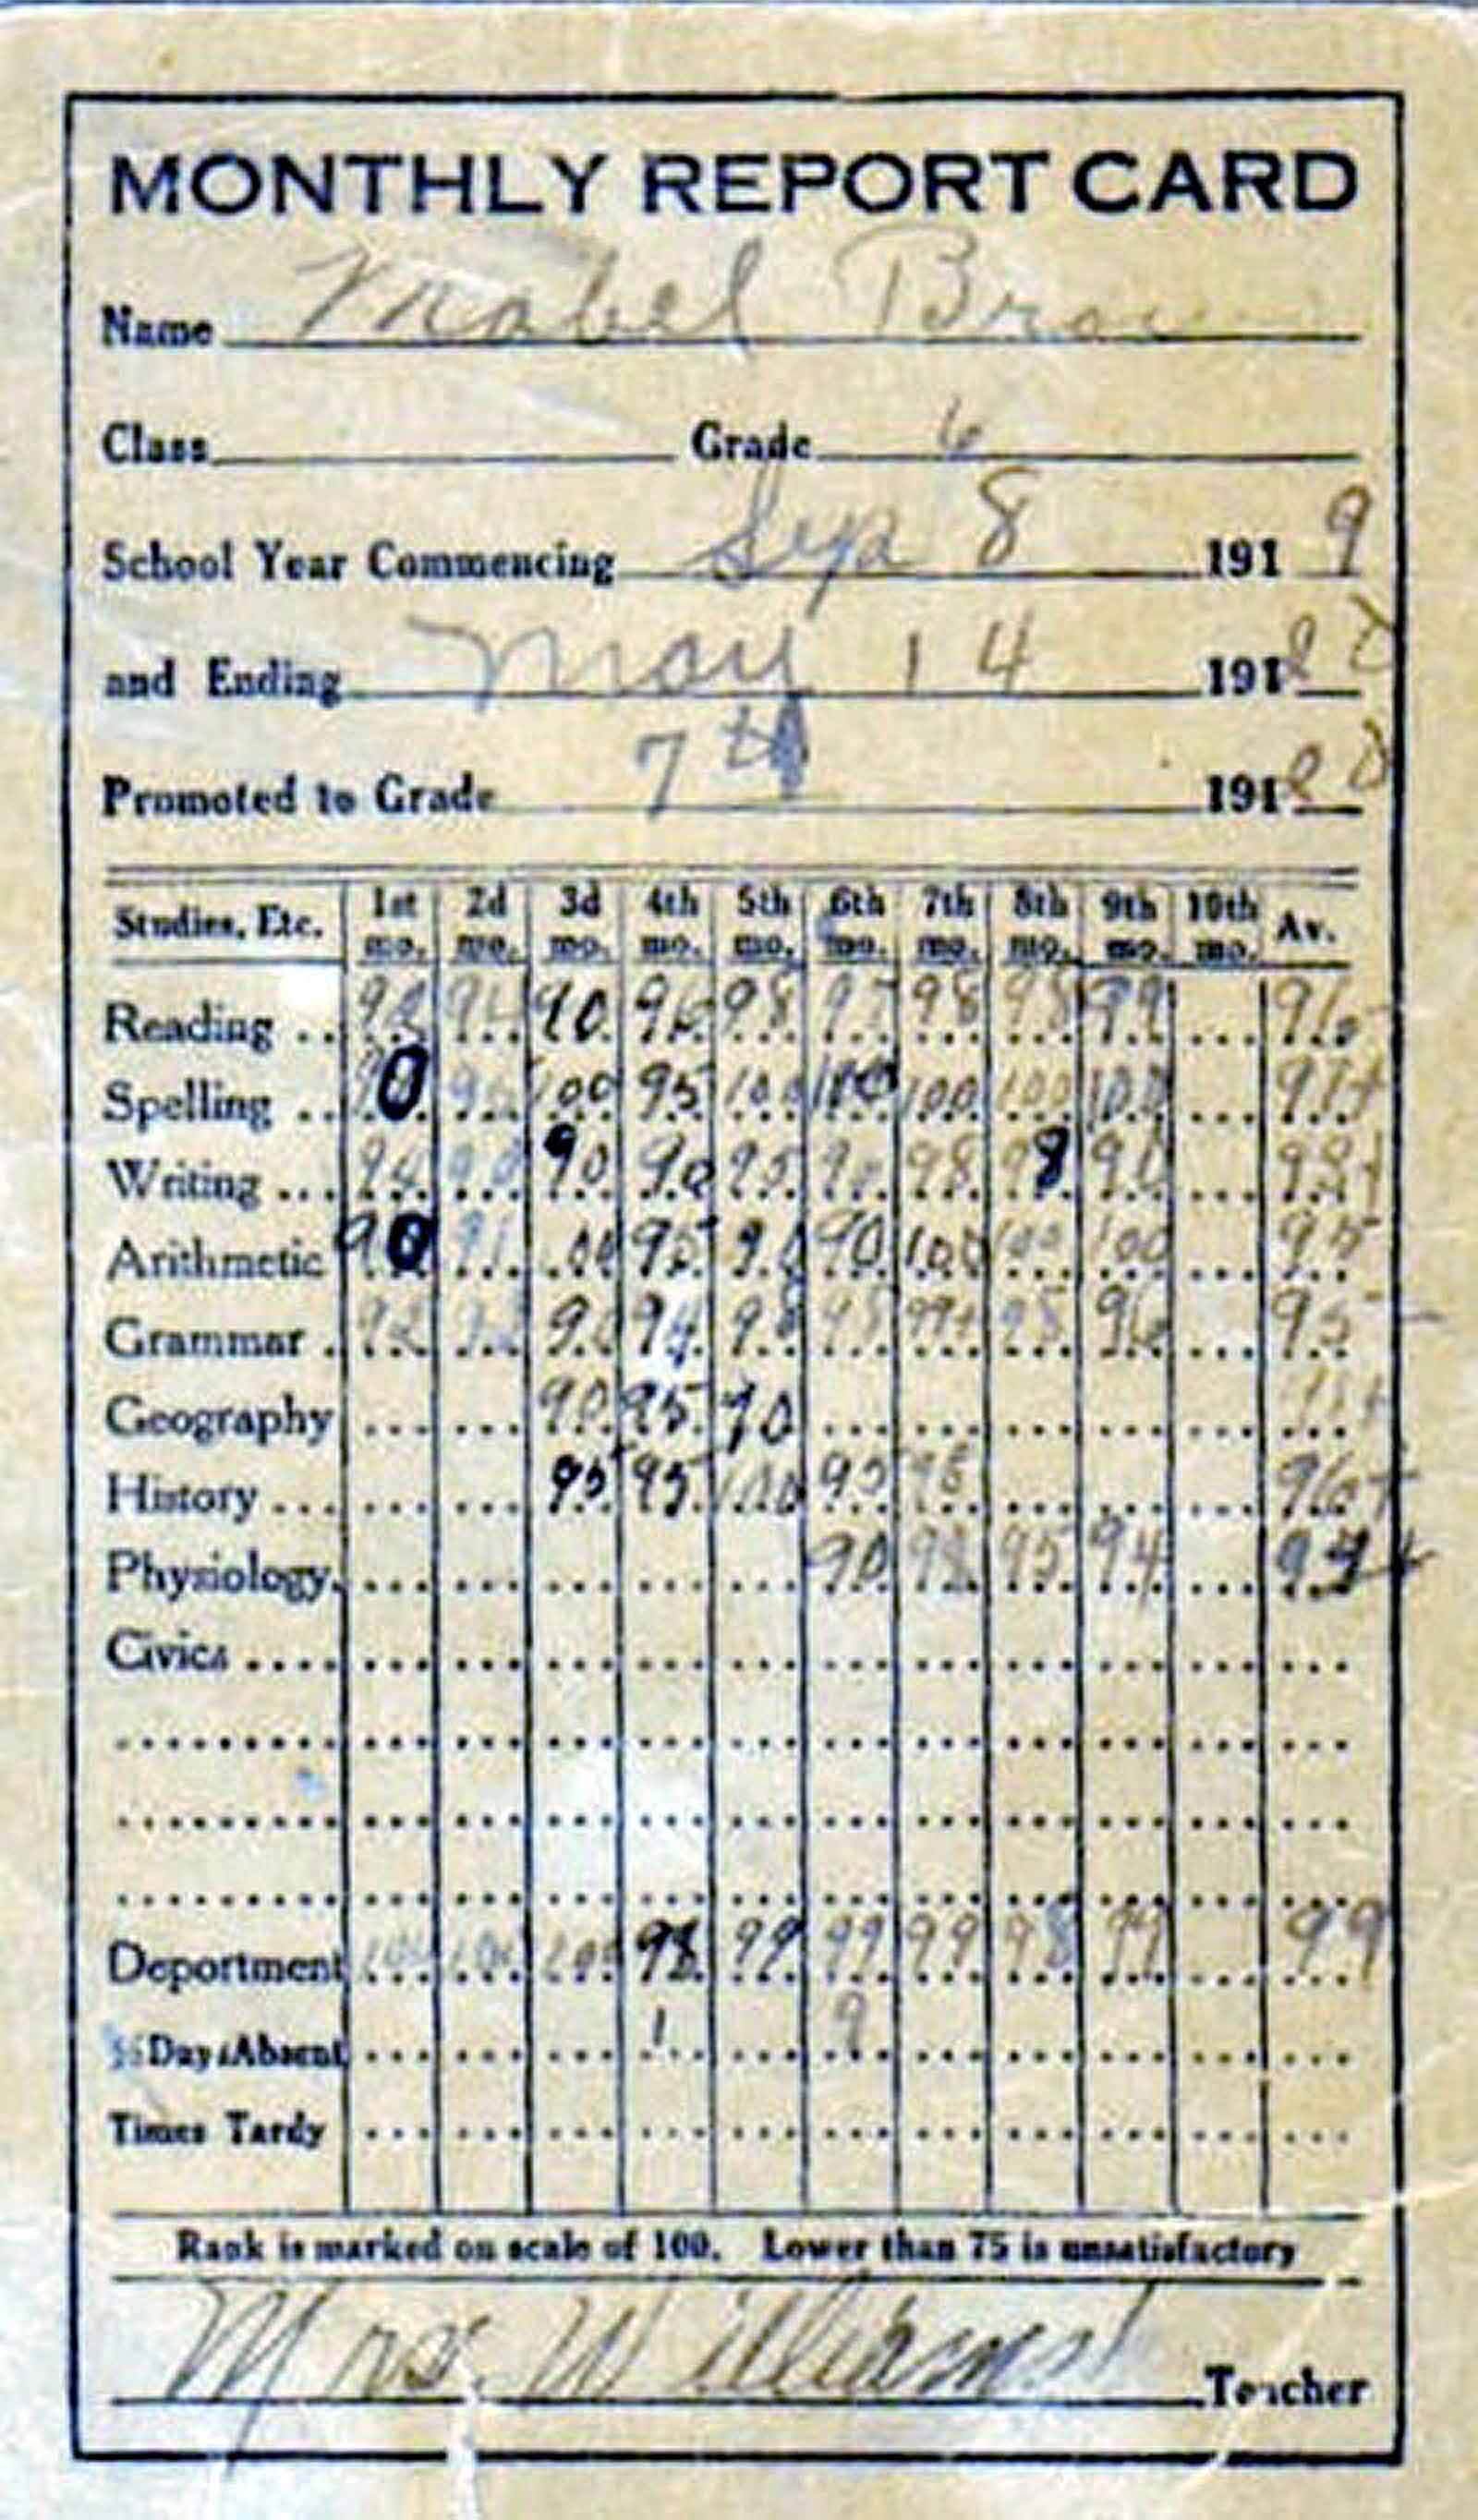 MONTHLY REPORT CARD
Name Mabel
Class Grade 6
School Year Commencing Sep 8 1919
and Ending May 14 191 20
Promoted to Grade 7th 191 20
Studies, Etc. 1st mo. 2d mo. 3d mo. 4th mo. 5th mo. 6th mo. 7th mo. 8th mo. 9th mo. 10th mo. Av.
Reading 90 96 98 97 98 98 99 96
Spelling 90 100 95 100 100 100 100 100 97+
Writing 94 90 90 95 90 98 98 90
Arithmetic 90 91 95 90 90 100 100 100 95
Grammar 90 94 98 98 99+ 95 96 95
Geography 90 95 90
History 95 95 100 95 96+
Physiology 90 98 95 94 94+
Civics
Deportment 100 100 100 98 99 99 99 98 99 99
½ Days Absent 1 9
Times Tardy
Rank is marked on scale of 100. Lower than 75 is unsatisfactory
Mrs. Williams Teacher